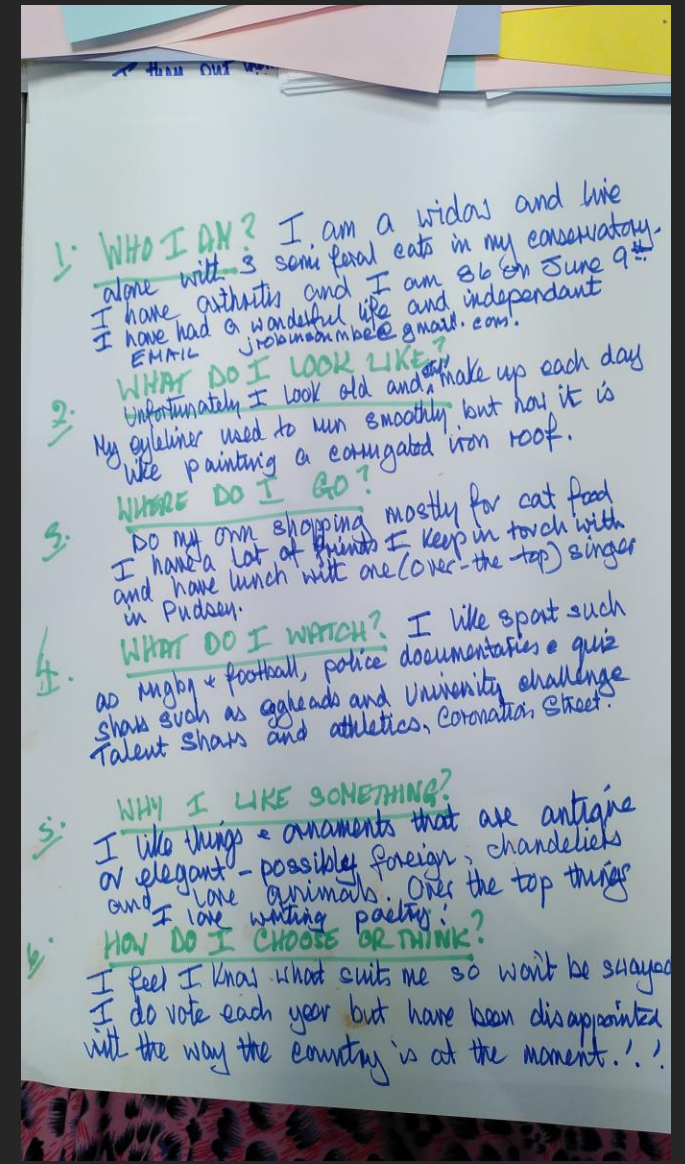 I than out
1. WHO I AM? I am a widow and live
alone with 3 semi feral cats in my conservatory.
I have arthritis and I am 86 on June 9th
I have had a wonderful life and independant
EMAIL jrobinsonmbe@gmail.com.
WHAT DO I LOOK LIKE?
2. Unfortunately I look old and still make up each day
My eyeliner used to run smoothly but now it is
like painting a corrugated iron roof.
WHERE DO I GO?
3. Do my own shopping mostly for cat food
I have a lot of friends I keep in touch with
and have lunch with one (over-the-top) singer
in Pudsey.
4. WHAT DO I WATCH? I like sport such
as rugby + football, police documentaries & quiz
shows such as eggheads and University challenge
Talent Shows and athletics, Coronation Street.
WHY I LIKE SOMETHING?
5. I like things & ornaments that are antique
or elegant - possibly foreign, chandeliers
and love animals. Over the top things
I love writing poetry!
6 HOW DO I CHOOSE OR THINK?
I feel I know what suits me so won't be swayed
I do vote each year but have been disappointed
with the way the country is at the moment.!.!